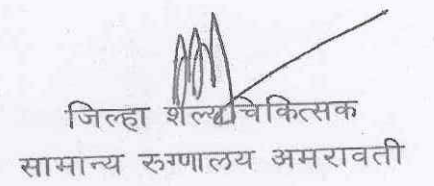 जिल्हा शल्यचिकित्सक
सामान्य रुग्णालय अमरावती